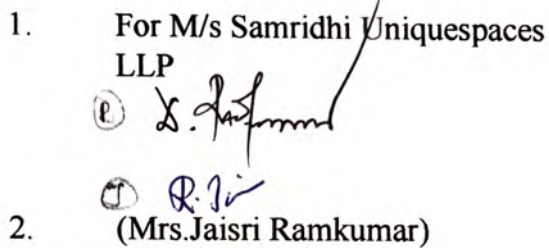 1. For M/s Samridhi Uniquespaces
LLP
2. (Mrs.Jaisri Ramkumar)